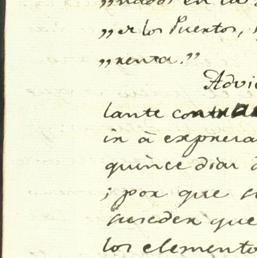 „nados en la
„er los Puertos, y
„renta."
Advie
lante contra
in à expresa
quince dias
; por que
suceden que
los elemento